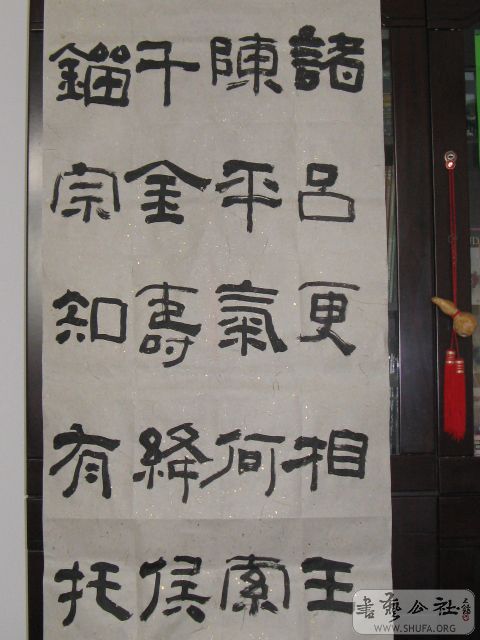 諸呂更相王
陳平氣何索
千金壽絳侯
鎦宗知有托
書藝公社
WWW.SHUFA.ORG